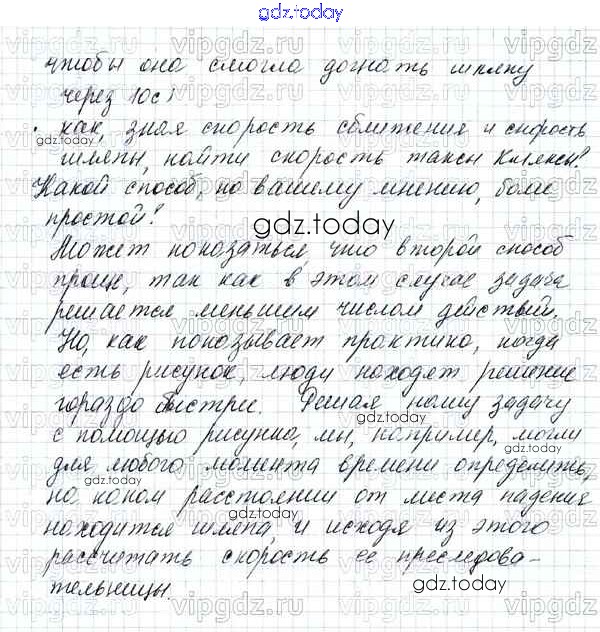 gdz.today
чтобы она смогла догнать шляпу
через 10с;
. как, зная скорость сближения и скорость
gdz.today
шляпы, найти скорость таксы Кляксы?
Какой способ, по вашему мнению, более
простой?
gdz.today
Может показаться, что второй способ
проще, так как в этом случае задача
решается меньшим числом действий.
Но, как показывает практика, когда
есть рисунок, люди находят решение
gdz.today
гораздо быстрее. Решая нашу задачу
gdz.today
с помощью рисунка, мы, например, могли
для любого момента времени определить,
gdz.today
на каком расстоянии от места падения
находится шляпа, и исходя из этого
gdz.today
рассчитать скорость ее преследова-
тельницы.
gdz.today